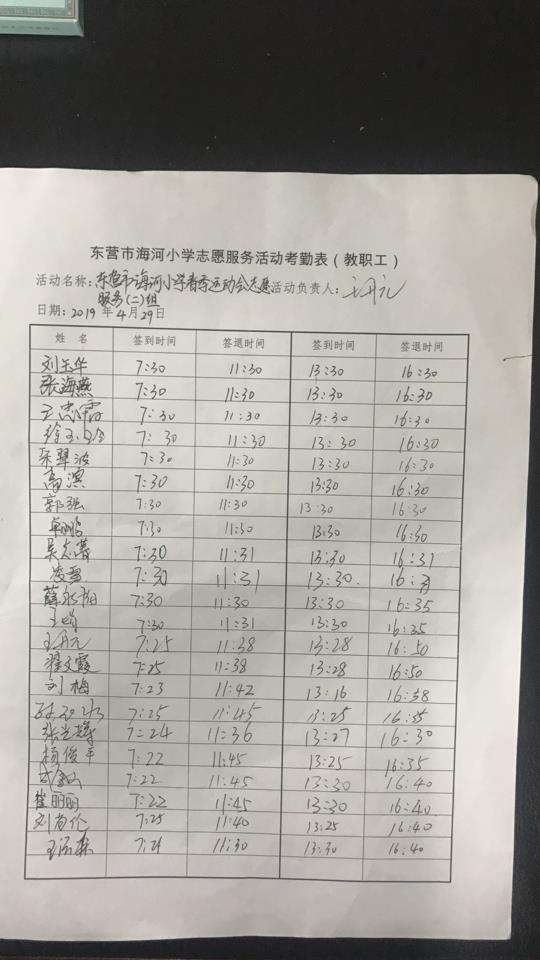 东营市海河小学志愿服务活动考勤表（教职工）
活动名称：东营市海河小学春季运动会志愿服务（二）组 活动负责人：王丹元
日期：2019年4月29日
姓名 签到时间 签退时间 签到时间 签退时间
刘玉华 7:30 11:30 13:30 16:30
张海燕 7:30 11:30 13:30 16:30
7:30 11:30 13:30 16:30
7:30 11:30 13:30 16:30
宋翠波 7:30 11:30 13:30 16:30
高滨 7:30 11:30 13:30 16:30
郭强 7:30 11:30 13:30 16:30
7:30 11:30 13:30 16:30
7:30 11:31 13:30 16:31
凌雪 7:30 11:31 13:30
7:30 11:30 13:30 16:35
7:30 11:31 13:30 16:35
王丹元 7:25 11:38 13:28 16:50
翟文霞 7:25 11:38 13:28 16:50
刘梅 7:23 11:42 13:16 16:58
7:25 11:45 13:25 16:55
7:24 11:36 13:27 16:30
杨俊平 7:22 11:45 13:25 16:35
7:22 11:45 13:30 16:40
崔丽丽 7:22 11:45 13:30 16:40
刘尚伦 7:25 11:40 13:25 16:40
7:21 11:30 13:30 16:40